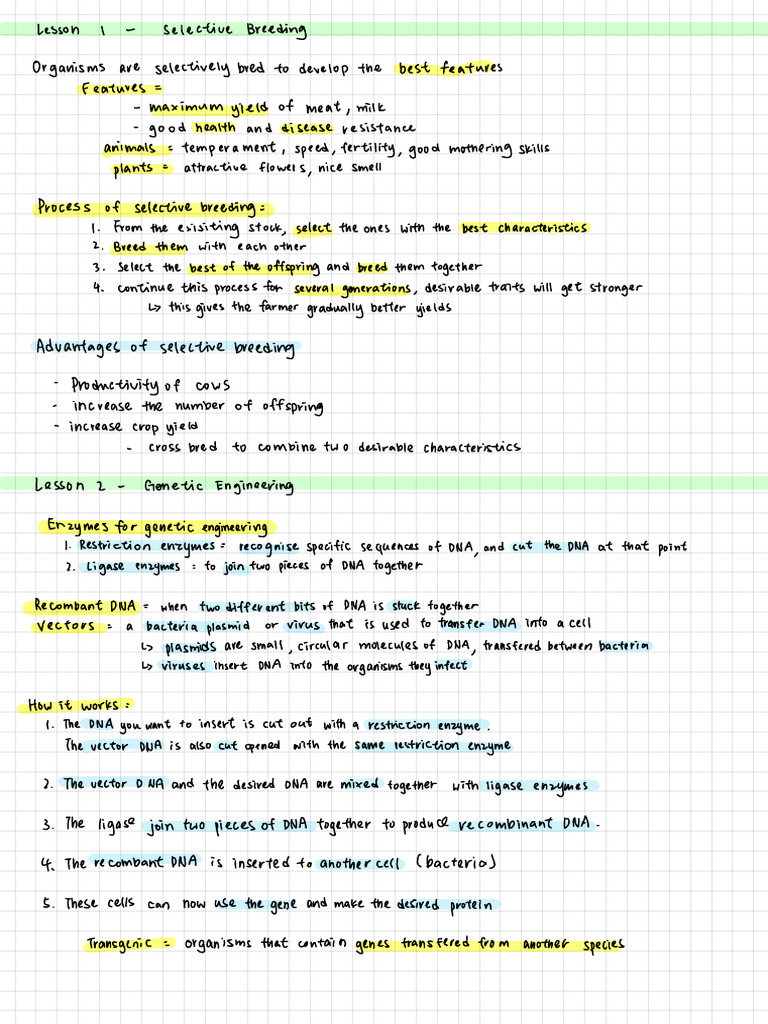 Lesson 1 - Selective Breeding
Organisms are selectively bred to develop the best features
Features =
- maximum yield of meat, milk
- good health and disease resistance
animals = temperament, speed, fertility, good mothering skills
plants = attractive flowers, nice smell
Process of selective breeding:
1. From the exisiting stock, select the ones with the best characteristics
2. Breed them with each other
3. Select the best of the offspring and breed them together
4. continue this process for several generations, desirable traits will get stronger
↳ this gives the farmer gradually better yields
Advantages of selective breeding
- Productivity of cows
- increase the number of offspring
- increase crop yield
- cross bred to combine two desirable characteristics
Lesson 2 - Genetic Engineering
Enzymes for genetic engineering
1. Restriction enzymes = recognise specific sequences of DNA, and cut the DNA at that point
2. Ligase enzymes = to join two pieces of DNA together
Recombant DNA = when two different bits of DNA is stuck together
Vectors = a bacteria plasmid or virus that is used to transfer DNA into a cell
↳ plasmids are small, circular molecules of DNA, transfered between bacteria
↳ viruses insert DNA into the organisms they infect
How it works:
1. The DNA you want to insert is cut out with a restriction enzyme.
The vector DNA is also cut opened with the same restriction enzyme
2. The vector DNA and the desired DNA are mixed together with ligase enzymes
3. The ligase join two pieces of DNA together to produce recombinant DNA.
4. The recombant DNA is inserted to another cell (bacteria)
5. These cells can now use the gene and make the desired protein
Transgenic = organisms that contain genes transfered from another species